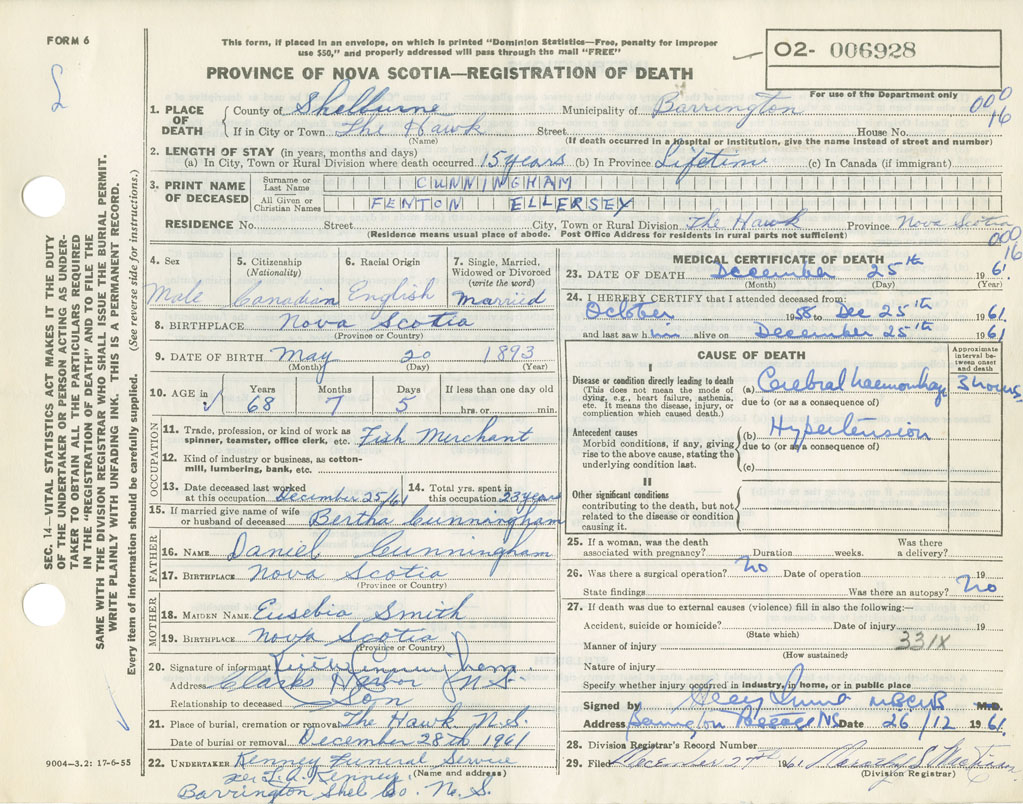 FORM 6
This form, if placed in an envelope, on which is printed "Dominion Statistics—Free, penalty for improper
use $50," and properly addressed will pass through the mail "FREE"
02- 006928
PROVINCE OF NOVA SCOTIA—REGISTRATION OF DEATH
For use of the Department only
000
16
SEC. 14—VITAL STATISTICS ACT MAKES IT THE DUTY
OF THE UNDERTAKER OR PERSON ACTING AS UNDER-
TAKER TO OBTAIN ALL THE PARTICULARS REQUIRED
IN THE "REGISTRATION OF DEATH" AND TO FILE THE
SAME WITH THE DIVISION REGISTRAR WHO SHALL ISSUE THE BURIAL PERMIT.
WRITE PLAINLY WITH UNFADING INK. THIS IS A PERMANENT RECORD.
Every item of information should be carefully supplied. (See reverse side for instructions.)
1. PLACE OF DEATH County of Shelburne Municipality of Barrington
If in City or Town The Hawk Street House No.
(Name) (If death occurred in a hospital or institution, give the name instead of street and number)
2. LENGTH OF STAY (in years, months and days)
(a) In City, Town or Rural Division where death occurred 15 years (b) In Province Lifetime (c) In Canada (if immigrant)
3. PRINT NAME OF DECEASED Surname or Last Name CUNNINGHAM
All Given or Christian Names FENTON ELLERSEY
RESIDENCE No. Street City, Town or Rural Division The Hawk Province Nova Scotia
(Residence means usual place of abode. Post Office Address for residents in rural parts not sufficient)
000
16
4. Sex 5. Citizenship (Nationality) 6. Racial Origin 7. Single, Married, Widowed or Divorced (write the word)
Male Canadian English Married
8. BIRTHPLACE Nova Scotia
(Province or Country)
9. DATE OF BIRTH May 20 1893
(Month) (Day) (Year)
10. AGE in Years Months Days If less than one day old
68 7 5 hrs. or min.
OCCUPATION
11. Trade, profession, or kind of work as
spinner, teamster, office clerk, etc. Fish Merchant
12. Kind of industry or business, as cotton-
mill, lumbering, bank, etc.
13. Date deceased last worked at this occupation December 25/61 14. Total yrs. spent in this occupation 23 years
15. If married give name of wife
or husband of deceased Bertha Cunningham
FATHER
16. NAME Daniel Cunningham
17. BIRTHPLACE Nova Scotia
(Province or Country)
MOTHER
18. MAIDEN NAME Eusebia Smith
19. BIRTHPLACE Nova Scotia
(Province or Country)
20. Signature of informant Cunningham
Address Clarks Harbor N.S.
Relationship to deceased Son
21. Place of burial, cremation or removal The Hawk N.S.
Date of burial or removal December 28th 1961
22. UNDERTAKER Kenney Funeral Service
(Name and address)
per Kenney
Barrington Shel Co. N.S.
9004—3.2: 17-6-55
MEDICAL CERTIFICATE OF DEATH
23. DATE OF DEATH December 25th 1961
(Month) (Day) (Year)
24. I HEREBY CERTIFY that I attended deceased from:
October 1958 to Dec 25th 1961
and last saw him alive on December 25th 1961
CAUSE OF DEATH
Approximate interval between onset and death
I
Disease or condition directly leading to death
(This does not mean the mode of
dying, e.g., heart failure, asthenia,
etc. It means the disease, injury, or
complication which caused death.)
(a) Cerebral haemorrhage 3 hours
due to (or as a consequence of)
Antecedent causes
Morbid conditions, if any, giving
rise to the above cause, stating the
underlying condition last.
(b) Hypertension
due to (or as a consequence of)
(c)
II
Other significant conditions
contributing to the death, but not
related to the disease or condition
causing it.
25. If a woman, was the death associated with pregnancy? Duration weeks. Was there a delivery?
26. Was there a surgical operation? No Date of operation 19
State findings Was there an autopsy? No
27. If death was due to external causes (violence) fill in also the following:—
Accident, suicide or homicide? Date of injury 19
(State which)
Manner of injury 331X
(How sustained)
Nature of injury
Specify whether injury occurred in industry, in home, or in public place
Signed by M.D.
Address Barrington Passage NS Date 26/12 1961
28. Division Registrar's Record Number
29. Filed December 27th 1961
(Division Registrar)